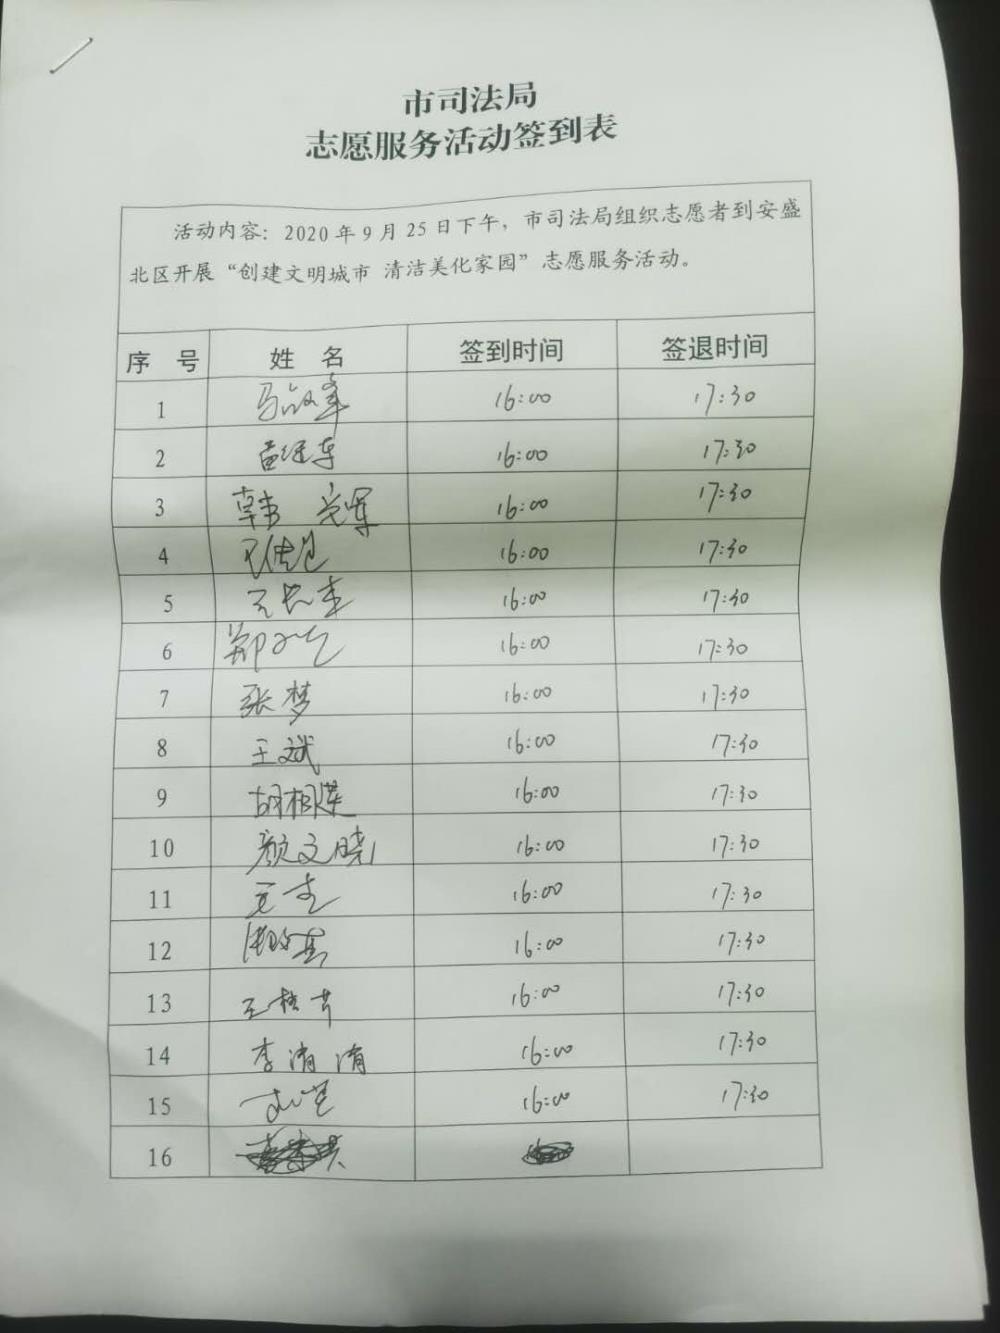 市司法局
志愿服务活动签到表
活动内容：2020年9月25日下午，市司法局组织志愿者到安盛
北区开展“创建文明城市 清洁美化家园”志愿服务活动。
序 号 姓 名 签到时间 签退时间
1 16:00 17:30
2 16:00 17:30
3 韩 16:00 17:30
4 16:00 17:30
5 16:00 17:30
6 郑 16:00 17:30
7 张梦 16:00 17:30
8 王斌 16:00 17:30
9 胡相莲 16:00 17:30
10 颜文晓 16:00 17:30
11 16:00 17:30
12 16:00 17:30
13 16:00 17:30
14 李清清 16:00 17:30
15 16:00 17:30
16